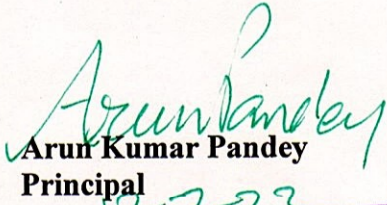 Arun Pandey
Arun Kumar Pandey
Principal